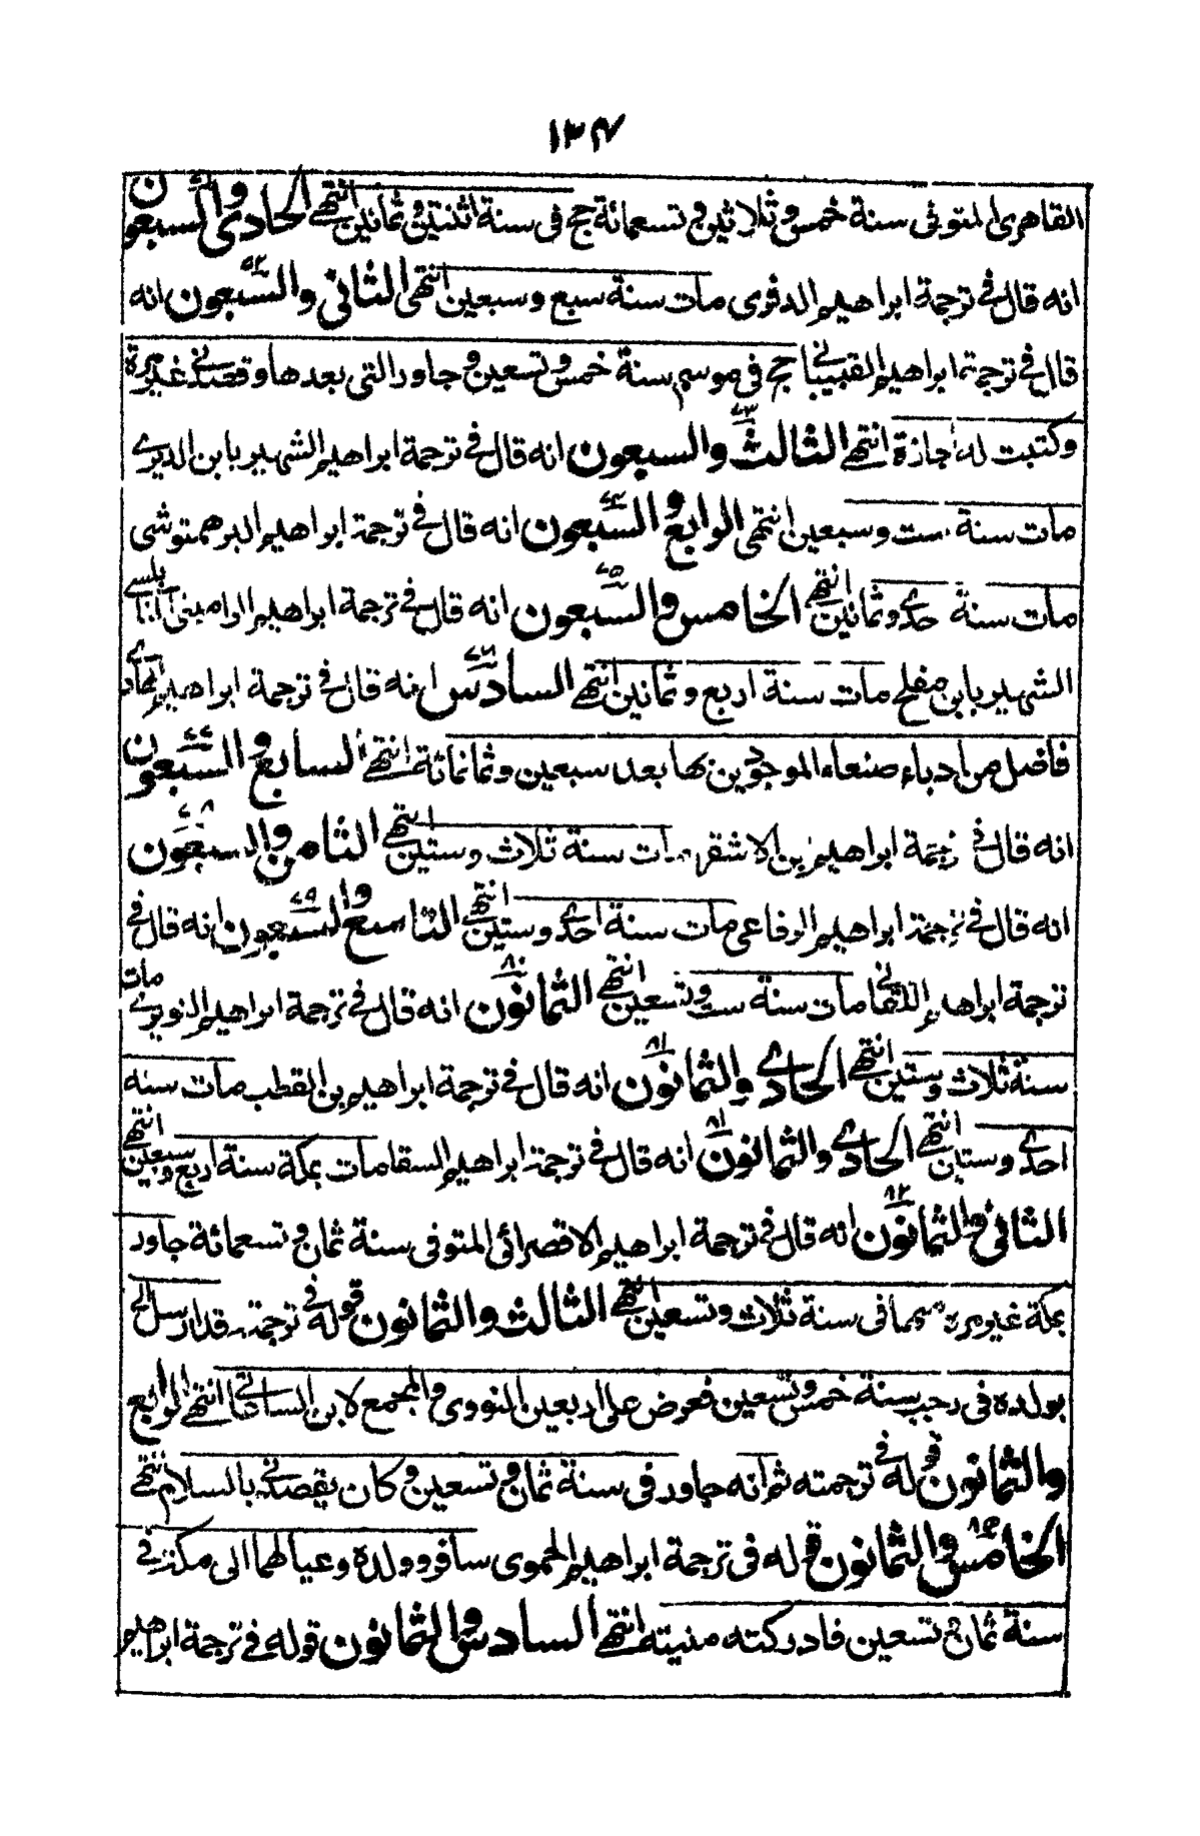 ١٣٧
القاهرى المتوفى سنة خمس وثلاثين وتسعمائة حج فى سنة اثنتين وثمانين انتهى الحادى والسبعون
انه قال فى ترجمة ابراهيم الدفرى مات سنة سبع وسبعين انتهى الثانى والسبعون ٧٢ انه
قال فى ترجمة ابراهيم القبيباتى حج فى موسم سنة خمس وتسعين وجاور التى بعدها وقصدنى غير مرة
وكتبت له اجازة انتهى الثالث والسبعون ٧٣ انه قال فى ترجمة ابراهيم الشهير بابن الديرى
مات سنة ست وسبعين انتهى الرابع والسبعون ٧٤ انه قال فى ترجمة ابراهيم البرهمتوشى
مات سنة حدى وثمانين انتهى الخامس والسبعون ٧٥ انه قال فى ترجمة ابراهيم الرامينى النابلسى
الشهير بابن مفلح مات سنة اربع وثمانين انتهى السادس ٧٦ انه قال فى ترجمة ابراهيم
فاضل من ادباء صنعاء الموجودين بها بعد سبعين وثمانمائة انتهى السابع والسبعون ٧٧
انه قال فى ترجمة ابراهيم بن الاشقر مات سنة ثلاث وستين انتهى الثامن والسبعون ٧٨
انه قال فى ترجمة ابراهيم الرفاعى مات سنة احدى وستين انتهى التاسع والسبعون ٧٩ انه قال فى
ترجمة ابراهيم اللقانى مات سنة ست وتسعين انتهى الثمانون ٨٠ انه قال فى ترجمة ابراهيم النويرى مات
سنة ثلاث وستين انتهى الحادى والثمانون ٨١ انه قال فى ترجمة ابراهيم بن القطب مات سنه
احدى وستين انتهى الحادى والثمانون ٨١ انه قال فى ترجمة ابراهيم السقا مات بمكة سنة اربع وسبعين انتهى
الثانى والثمانون ٨٢ انه قال فى ترجمة ابراهيم الاقصرائى المتوفى سنة ثمان وتسعمائة جاور
بمكة غير مرة سيما فى سنة ثلاث وتسعين انتهى الثالث والثمانون قوله فى ترجمته قد ارسل الى
بولده فى رجب سنة خمس وتسعين فعرض على اربعين النووى والمجمع لابن الساعاتى انتهى الرابع
والثمانون قوله فى ترجمته ثم انه جاور فى سنة ثمان وتسعين وكان يقصدنى بالسلام انتهى
الخامس والثمانون ٨٥ قوله فى ترجمة ابراهيم الحموى سافر وولده وعيالهما الى مكة فى
سنة ثمان وتسعين فادركته منيته انتهى السادس والثمانون قوله فى ترجمة ابراهيم